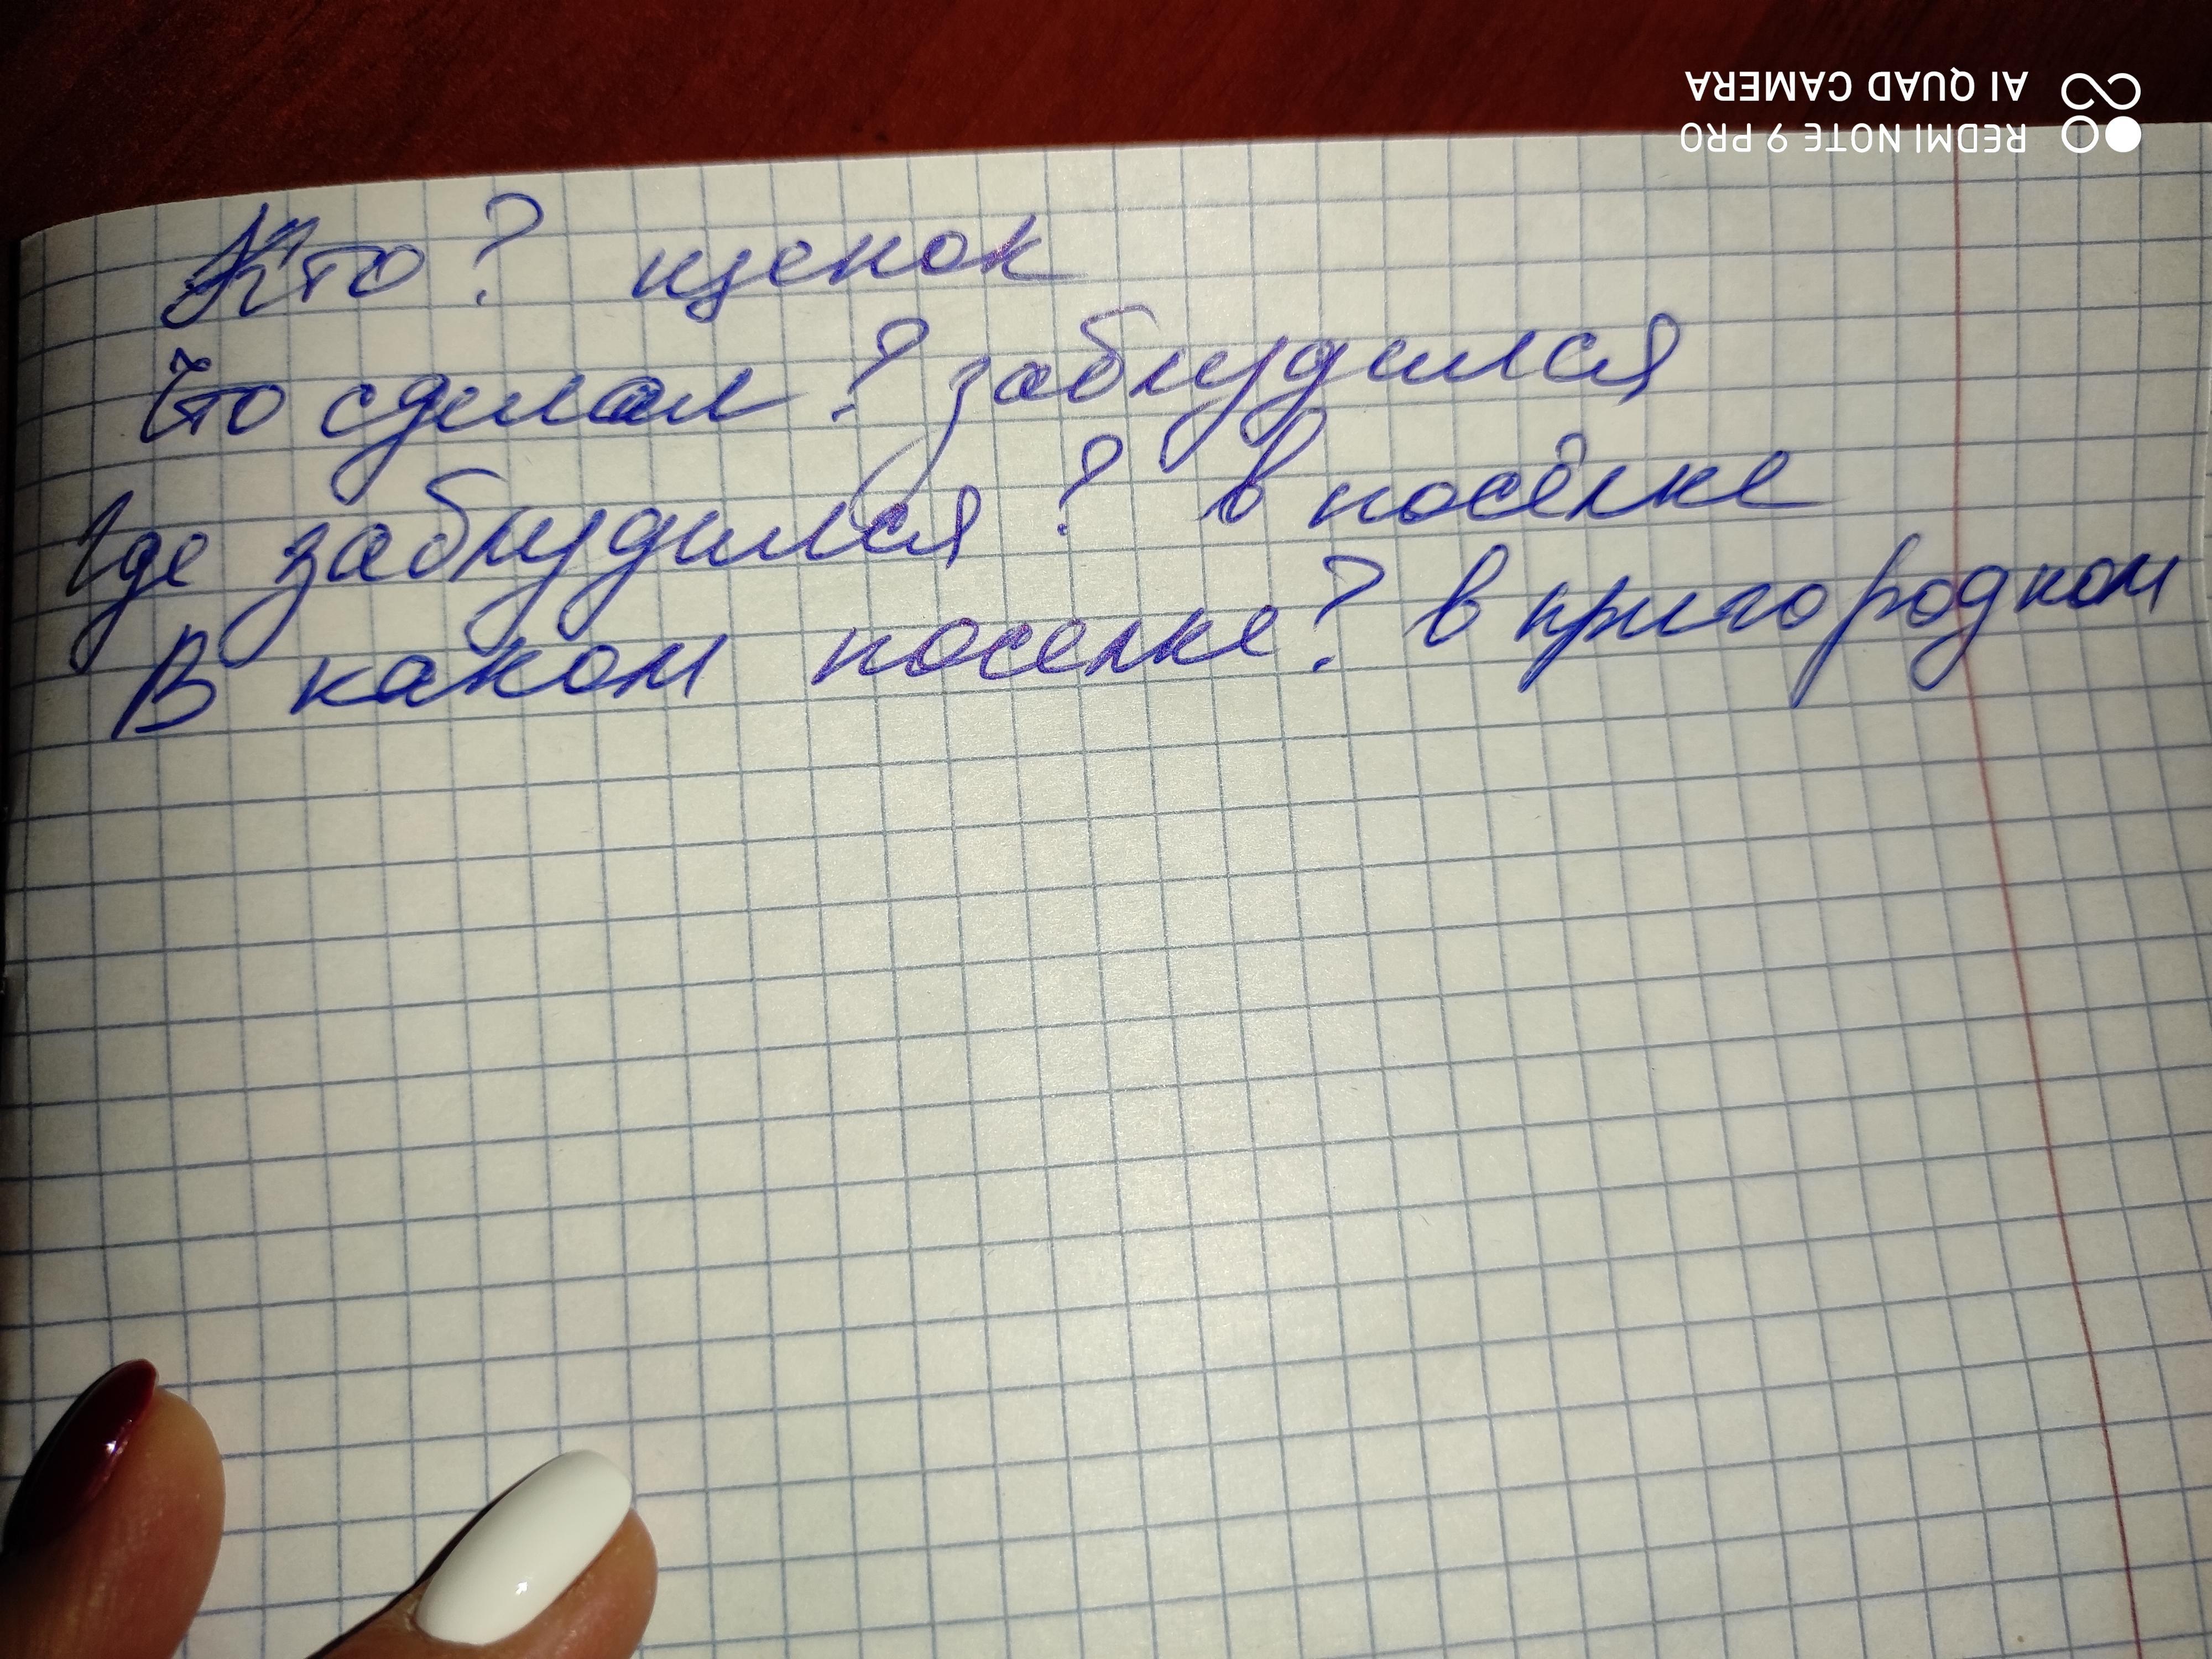 Кто? щенок
Что сделал? заблудился
Где заблудился? в посёлке
В каком поселке? в пригородном
REDMI NOTE 9 PRO
AI QUAD CAMERA